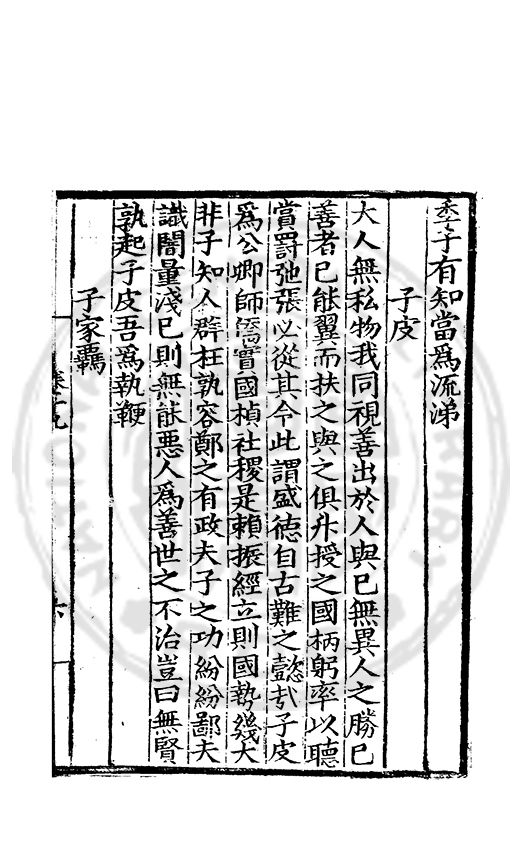 季子有知當爲流涕
子皮
大人無私物我同視善出於人與已無異人之勝已
善者已能翼而扶之與之俱升授之國柄躬率以聽
賞罸弛張必從其令此謂盛德自古難之懿㢤子皮
爲公卿師僑實國楨社稷是賴振經立則國勢幾大
非子知人群枉孰容鄭之有政夫子之功紛紛鄙夫
識闇量淺已則無能惡人爲善世之不治豈曰無賢
孰起子皮吾爲執鞭
子家覊